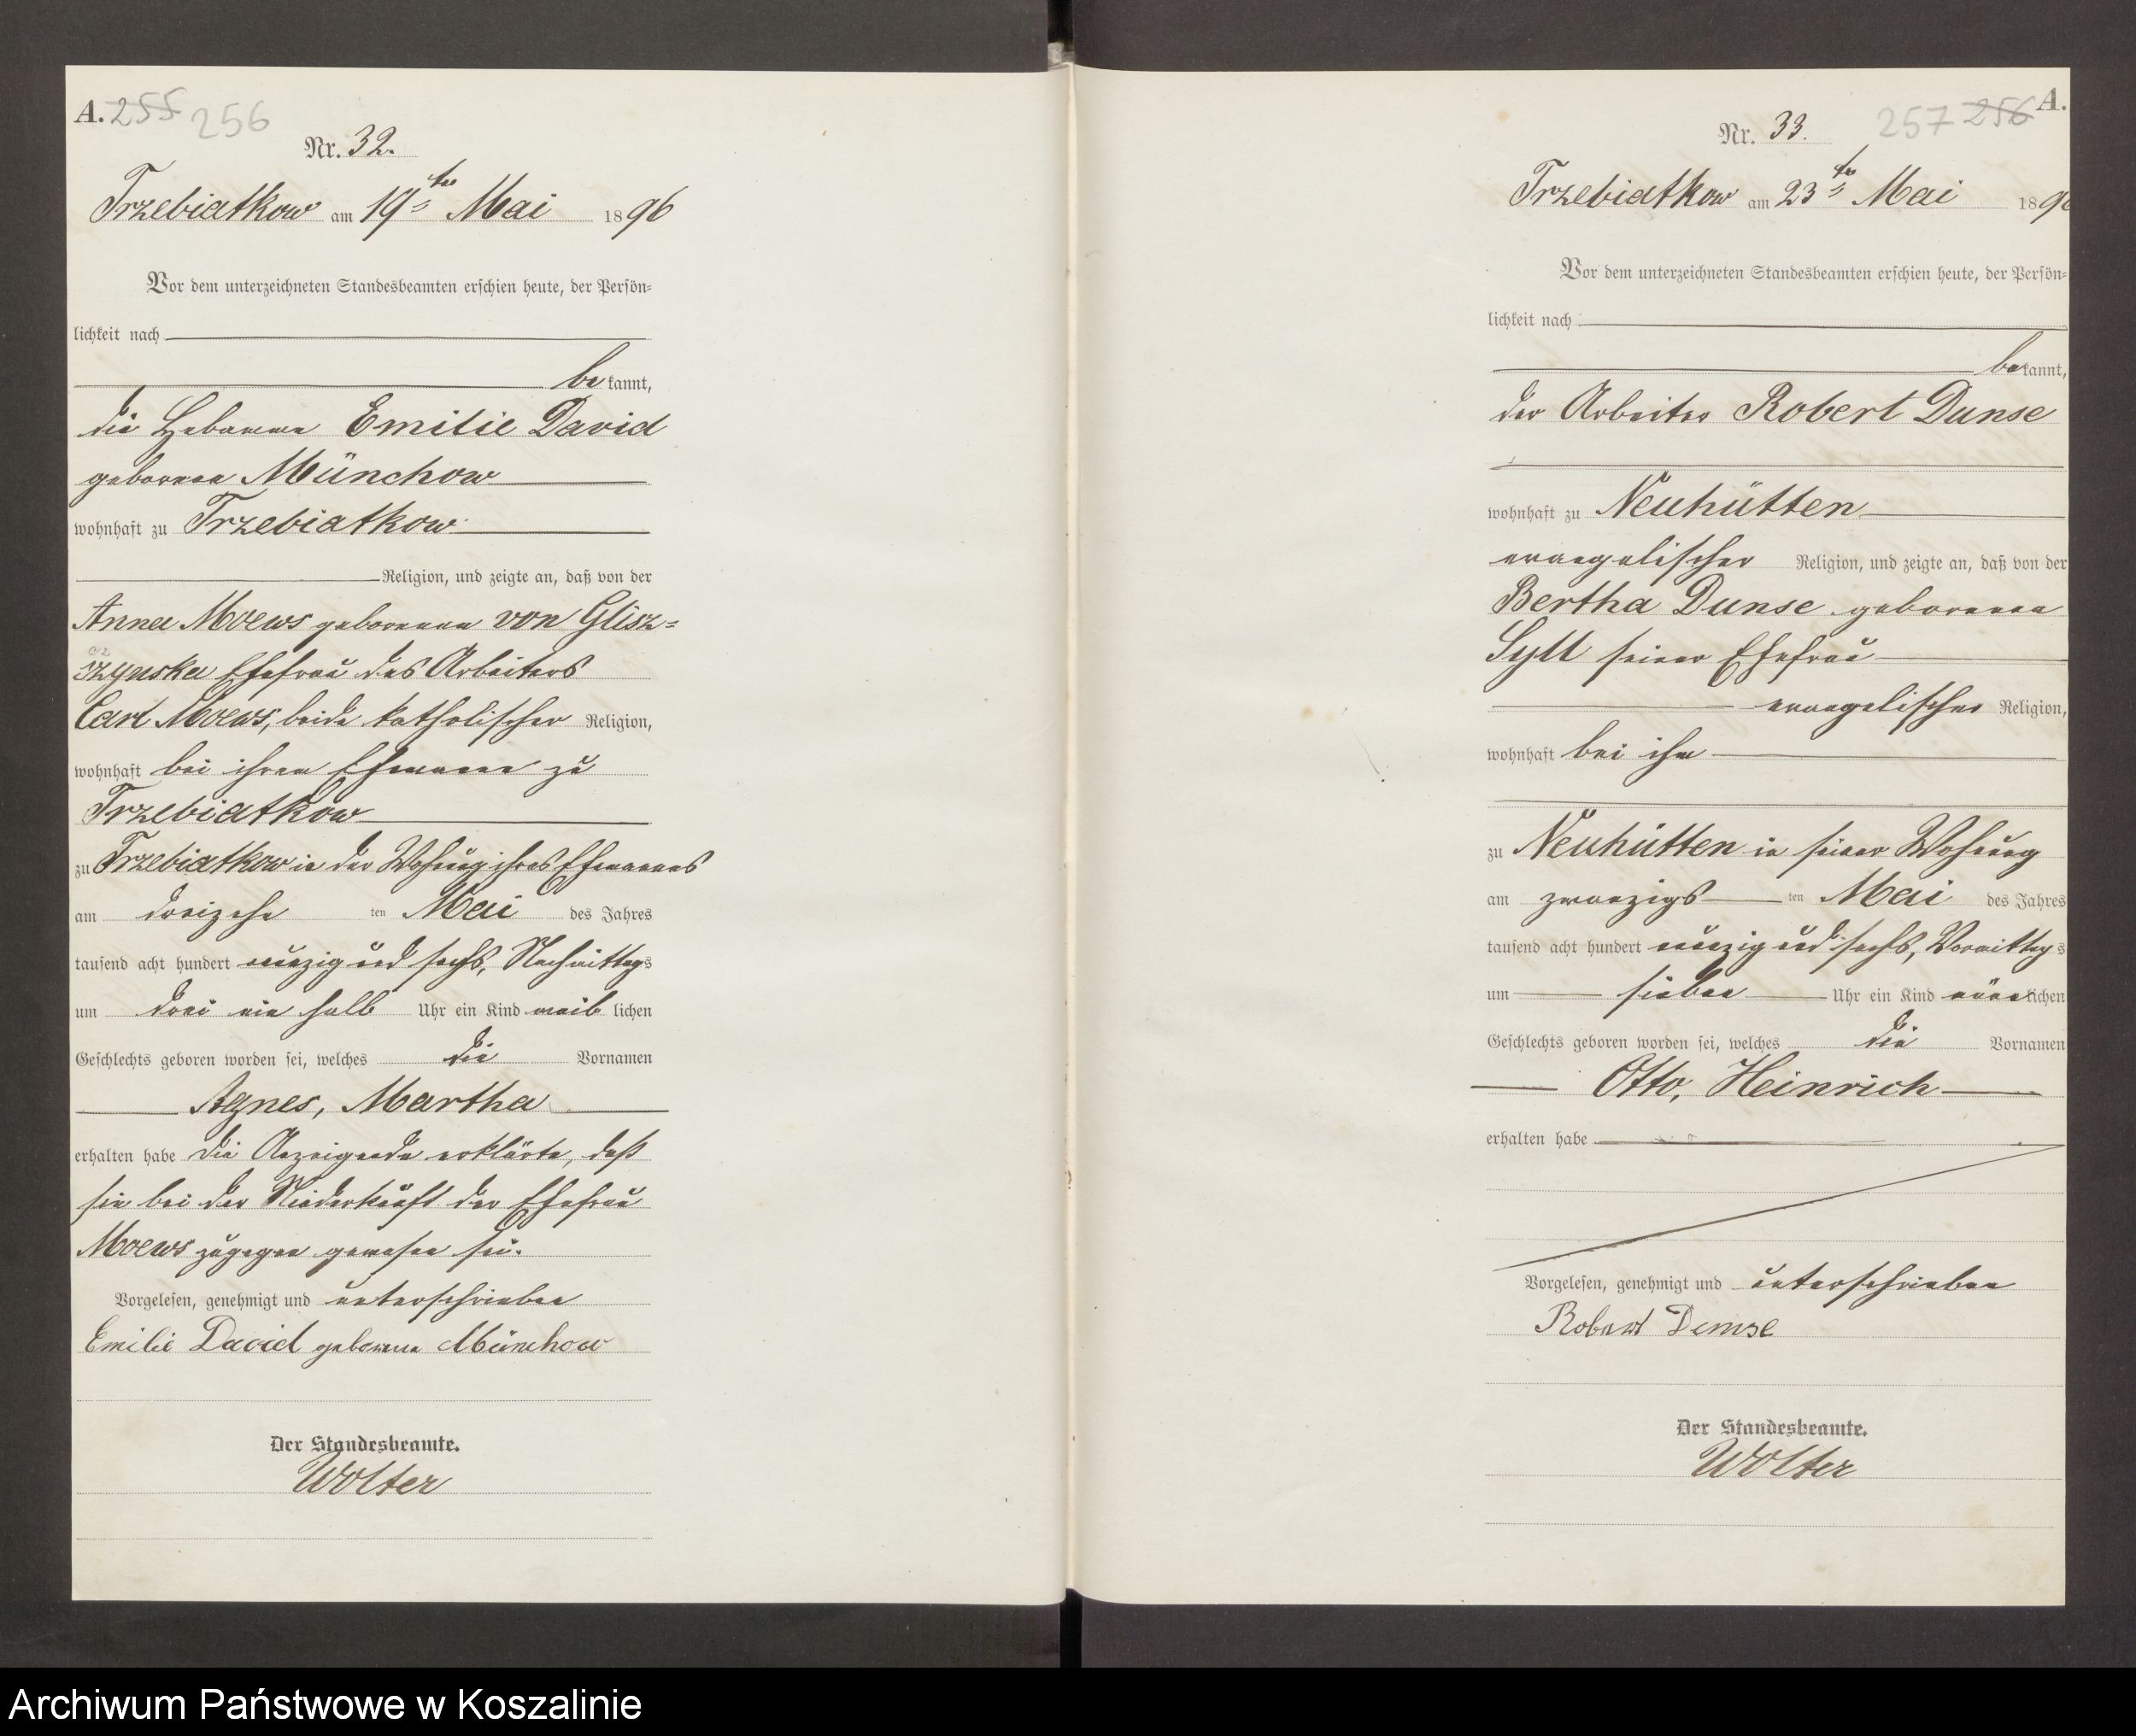 A. 255 256
Nr. 32.
Trzebiatkow am 19ten Mai 1896
Vor dem unterzeichneten Standesbeamten erschien heute, der Persön=
lichkeit nach
bekannt,
die Hebamme Emilie David
geborene Münchow
wohnhaft zu Trzebiatkow
Religion, und zeigte an, daß von der
Anna Moews geborenen von Glisz=
czynska Ehefrau des Arbeiters
Carl Moews, beide katholischer Religion,
wohnhaft bei ihrem Ehemanne zu
Trzebiatkow
zu Trzebiatkow in der Wohnung ihres Ehemannes
am dreizehnten Mai des Jahres
tausend acht hundert neunzig und sechs, Nachmittags
um drei ein halb Uhr ein Kind weiblichen
Geschlechts geboren worden sei, welches die Vornamen
Agnes, Martha
erhalten habe die Anzeigende erklärte, daß
sie bei der Niederkunft der Ehefrau
Moews zugegen gewesen sei.
Vorgelesen, genehmigt und unterschrieben
Emilie David geborene Münchow
Der Standesbeamte.
Wolter
257 256 A.
Nr. 33.
Trzebiatkow am 23ten Mai 189
Vor dem unterzeichneten Standesbeamten erschien heute, der Persön=
lichkeit nach
bekannt,
der Arbeiter Robert Dunse
wohnhaft zu Neuhütten
evangelischer Religion, und zeigte an, daß von der
Bertha Dunse geborenen
Syll seiner Ehefrau
evangelischer Religion,
wohnhaft bei ihm
zu Neuhütten in seiner Wohnung
am zwanzigsten Mai des Jahres
tausend acht hundert neunzig und sechs, Vormittags
um sieben Uhr ein Kind männlichen
Geschlechts geboren worden sei, welches die Vornamen
Otto, Heinrich
erhalten habe
Vorgelesen, genehmigt und unterschrieben
Robert Dunse
Der Standesbeamte.
Wolter
Archiwum Państwowe w Koszalinie